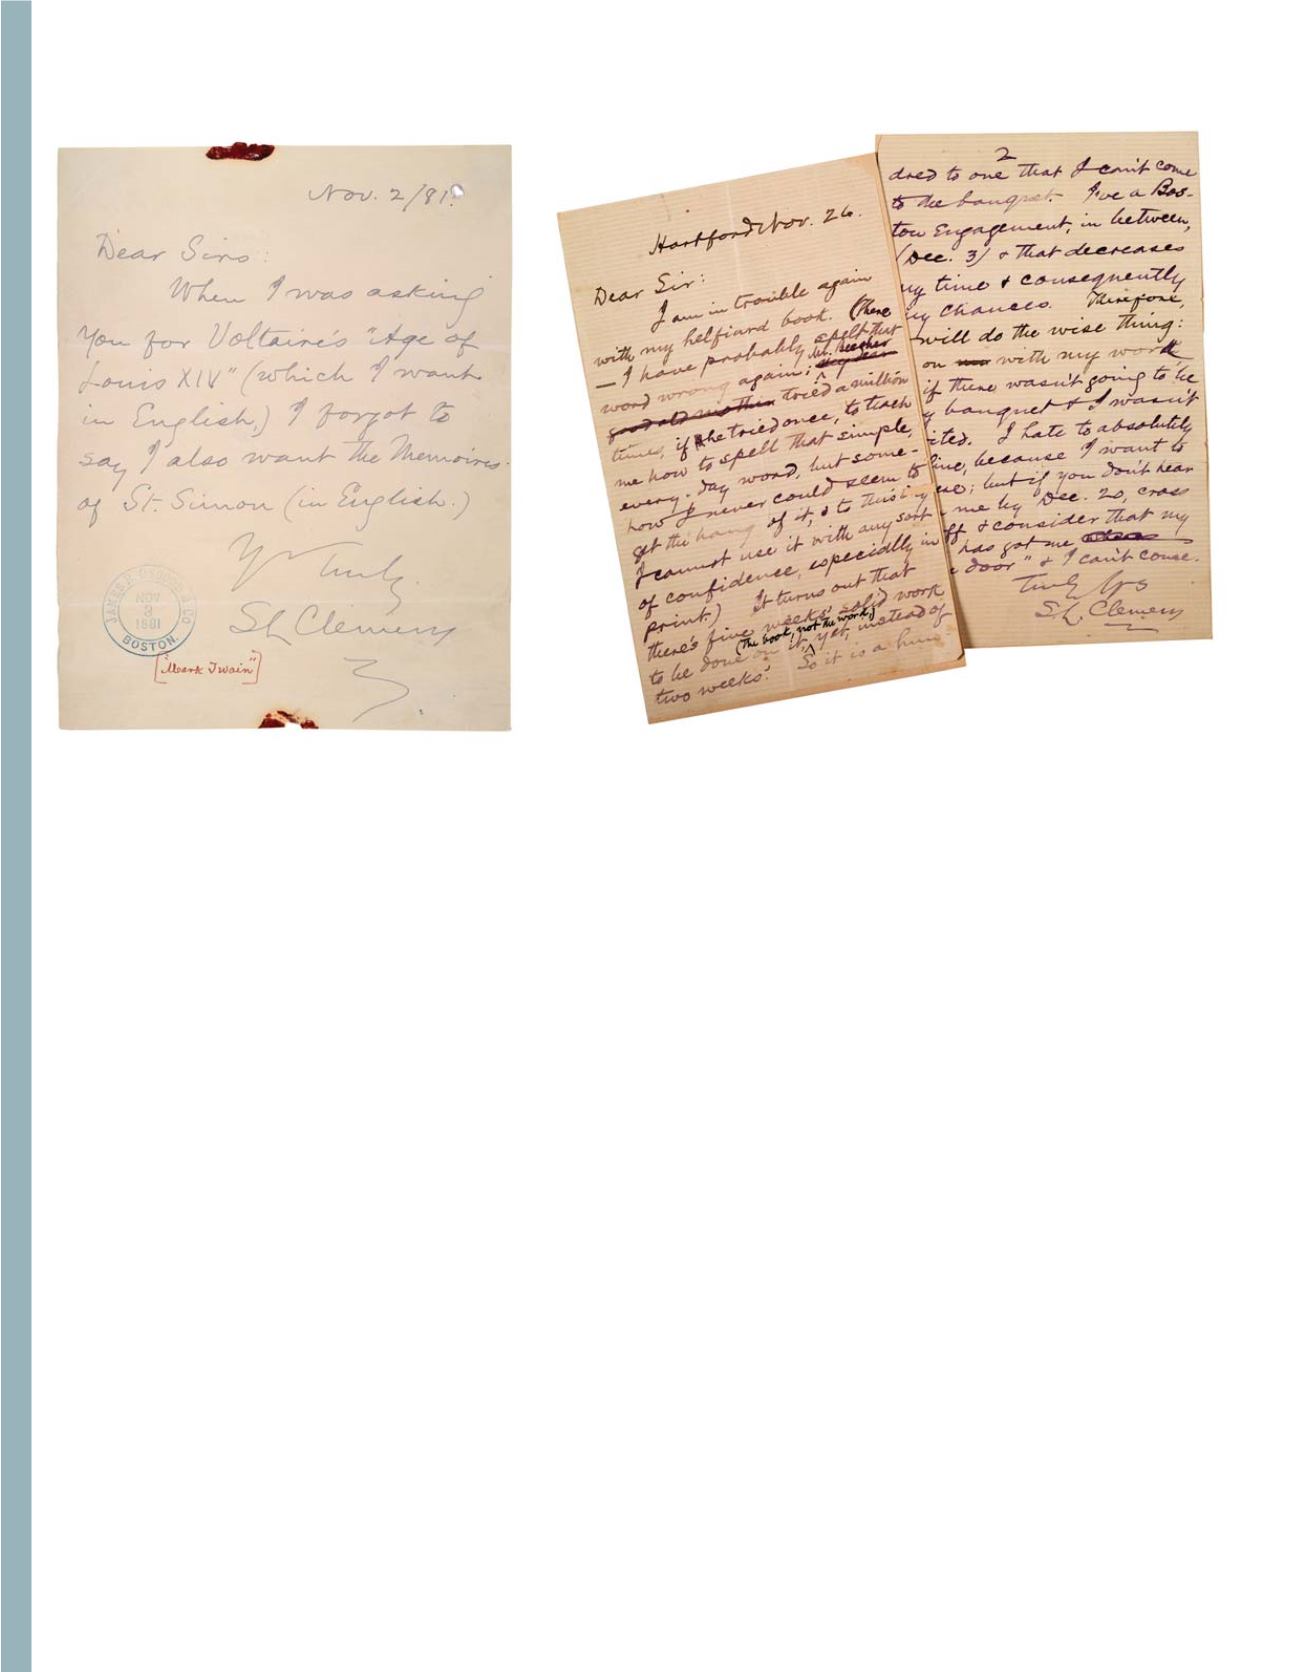 Nov. 2/81.
Dear Sirs:
When I was asking
you for Voltaire's "Age of
Louis XIV" (which I want
in English,) I forgot to
say I also want the Memoires
of St. Simon (in English.)
Yrs Truly
SL Clemens
NOV
3
1881
BOSTON.
["Mark Twain"]
Hartford Nov. 26.
Dear Sir:
I am in trouble again
with my helfiard book. (There
— I have probably spelt that
word wrong again; Mr. Beecher
good old mother tried a million
times, if he tried once, to teach
me how to spell that simple,
every-day word, but some-
how I never could seem to
get the hang of it, & to this
I cannot use it with any sort
of confidence, especially in
print.) It turns out that
there's five weeks' solid work
(The book, not the word,)
to be done on it, yet, instead of
two weeks'. So it is a hun
2
dred to one that I can't come
to the banquet. I've a Bos-
ton Engagement, in between,
(Dec. 3) & that decreases
my time & consequently
my chances. Therefore,
will do the wise thing:
on with my work
if there wasn't going to be
banquet & I wasn't
ited. I hate to absolutely
line, because I want to
; but if you don't hear
me by Dec. 20, cross
ff & consider that my
has got me
door" & I can't come.
Truly Yrs
S.L. Clemens